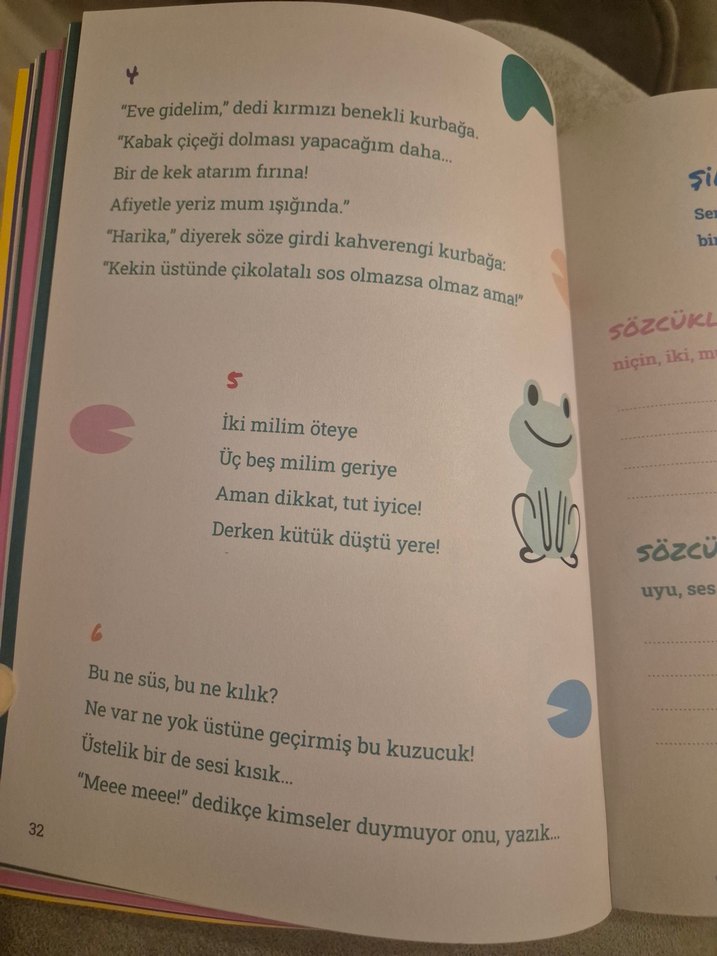 4
“Eve gidelim,” dedi kırmızı benekli kurbağa.
“Kabak çiçeği dolması yapacağım daha...
Bir de kek atarım fırına!
Afiyetle yeriz mum ışığında.”
“Harika,” diyerek söze girdi kahverengi kurbağa:
“Kekin üstünde çikolatalı sos olmazsa olmaz ama!”
5
İki milim öteye
Üç beş milim geriye
Aman dikkat, tut iyice!
Derken kütük düştü yere!
6
Bu ne süs, bu ne kılık?
Ne var ne yok üstüne geçirmiş bu kuzucuk!
Üstelik bir de sesi kısık...
“Meee meee!” dedikçe kimseler duymuyor onu, yazık...
32
niçin, iki,
uyu, ses